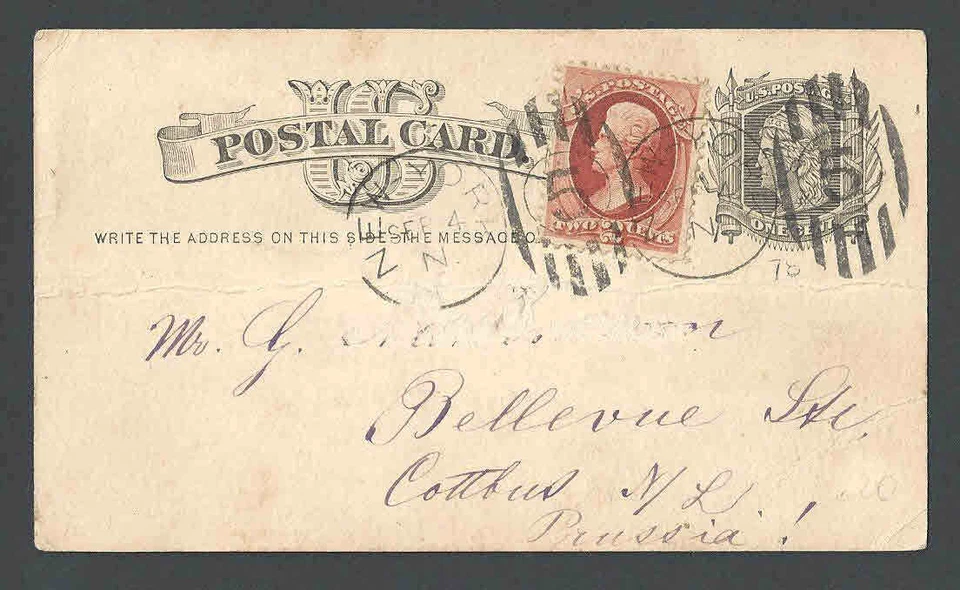 U.S. POSTAGE
U.S. POSTAGE
US
POSTAL CARD.
TWO 2 CENTS
ONE CENT
WRITE THE ADDRESS ON THIS SIDE-THE MESSAGE O
NEW YORK
SEP 4
N.Y.
78
Mr. G.
Bellevue Str.
Cottbus N/L.
Prussia!